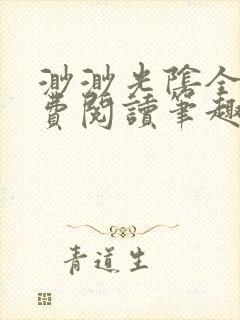 渺渺光陰全
費閱讀筆趣
青道生